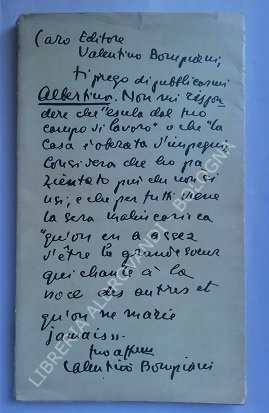 Caro Editore
Valentino Bompiani,
ti prego di pubblicarmi
Albertina. Non mi rispon
dere che "esula dal tuo
campo di lavoro" o che "la
casa è oberata d'impegni".
Considera che ho pa
zientato più che non si
usi, e che per tutti viene
la sera malinconica
"qu'on en a assez
d'être la grande soeur
qui chante à la
noce des autres et
qu'on ne marie
jamais".
tuo aff.mo
Valentino Bompiani
LIBRERIA ALBERGHINI BOLOGNA